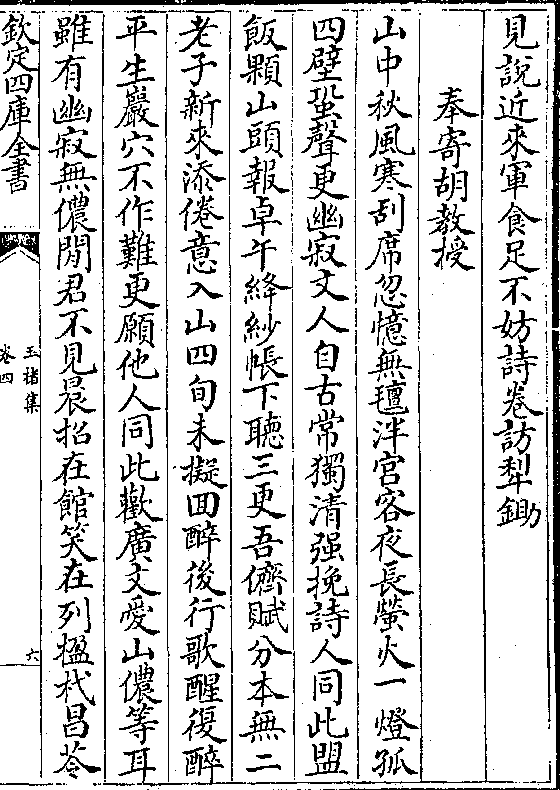 見說近來軍食足不妨詩卷訪犁鋤
奉寄胡教授
山中秋風寒刮席忽憶無氊泮宮客夜長螢火一燈孤
四壁蛩聲更幽寂文人自古常獨清强挽詩人同此盟
飯顆山頭報卓午絳紗帳下聽三更吾儕賦分本無二
老子新來添倦意入山四旬未擬回醉後行歌醒復醉
平生巖穴不作難更願他人同此歡廣文愛山儂等耳
雖有幽寂無儂閒君不見晨招在館笑在列楹杙昌苓
欽定四庫全書
玉楮集
卷四
六